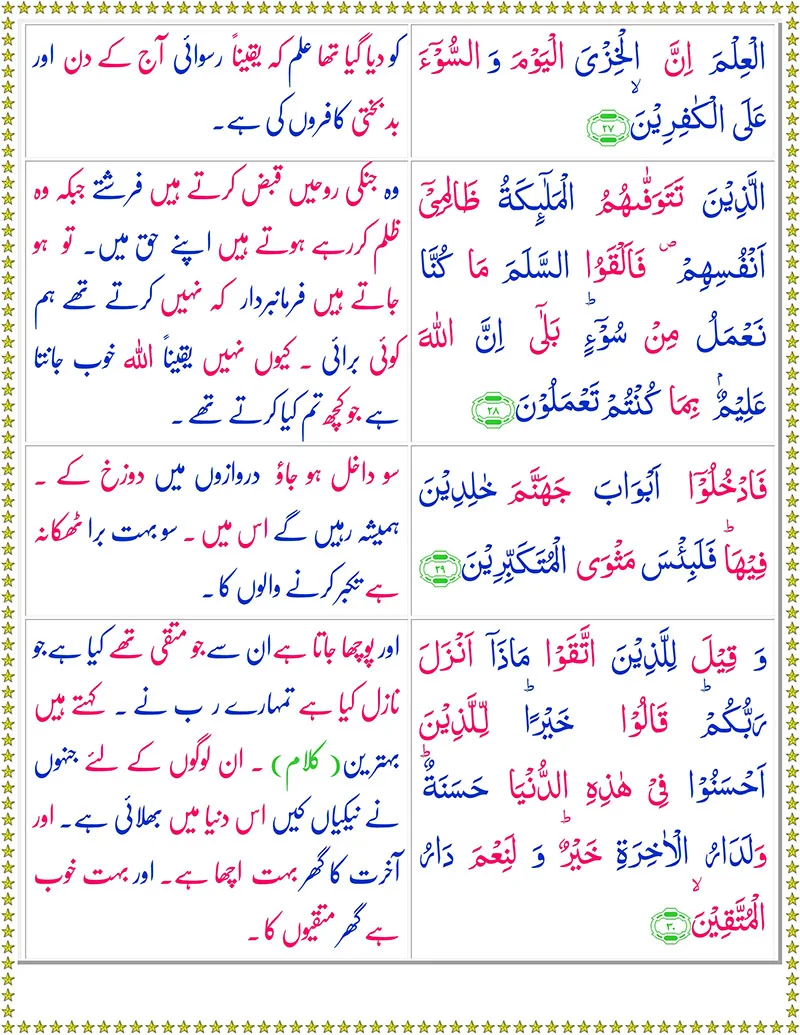 الْعِلْمَ اِنَّ الْخِزْیَ الْیَوْمَ وَ السُّوْٓءَ
عَلَی الْكٰفِرِیْنَۙ ۲۷
کو دیا گیا تھا علم کہ یقیناً رسوائی آج کے دن اور
بدبختی کافروں کی ہے۔
الَّذِیْنَ تَتَوَفّٰىهُمُ الْمَلٰٓىِٕكَةُ ظَالِمِیْۤ
اَنْفُسِهِمْ۪ فَاَلْقَوُا السَّلَمَ مَا كُنَّا
نَعْمَلُ مِنْ سُوْٓءٍؕ بَلٰۤی اِنَّ اللّٰهَ
عَلِیْمٌۢ بِمَا كُنْتُمْ تَعْمَلُوْنَ ۲۸
وہ جنکی روحیں قبض کرتے ہیں فرشتے جبکہ وہ
ظلم کررہے ہوتے ہیں اپنے حق میں۔ تو ہو
جاتے ہیں فرمانبردار کہ نہیں کرتے تھے ہم
کوئی برائی ۔ کیوں نہیں یقیناً اللہ خوب جانتا
ہے جو کچھ تم کیا کرتے تھے ۔
فَادْخُلُوْۤا اَبْوَابَ جَهَنَّمَ خٰلِدِیْنَ
فِیْهَاؕ فَلَبِئْسَ مَثْوَی الْمُتَكَبِّرِیْنَ ۲۹
سو داخل ہو جاؤ دروازوں میں دوزخ کے ۔
ہمیشہ رہیں گے اس میں ۔ سو بہت برا ٹھکانہ
ہے تکبر کرنے والوں کا ۔
وَ قِیْلَ لِلَّذِیْنَ اتَّقَوْا مَاذَاۤ اَنْزَلَ
رَبُّكُمْؕ قَالُوْا خَیْرًاؕ لِلَّذِیْنَ
اَحْسَنُوْا فِیْ هٰذِهِ الدُّنْیَا حَسَنَةٌؕ
وَلَدَارُ الْاٰخِرَةِ خَیْرٌؕ وَ لَنِعْمَ دَارُ
الْمُتَّقِیْنَۙ ۳۰
اور پوچھا جاتا ہے ان سے جو متقی تھے کیا ہے جو
نازل کیا ہے تمہارے رب نے ۔ کہتے ہیں
بہترین ( کلام ) ۔ ان لوگوں کے لئے جنہوں
نے نیکیاں کیں اس دنیا میں بھلائی ہے۔ اور
آخرت کا گھر بہت اچھا ہے۔ اور بہت خوب
ہے گھر متقیوں کا ۔